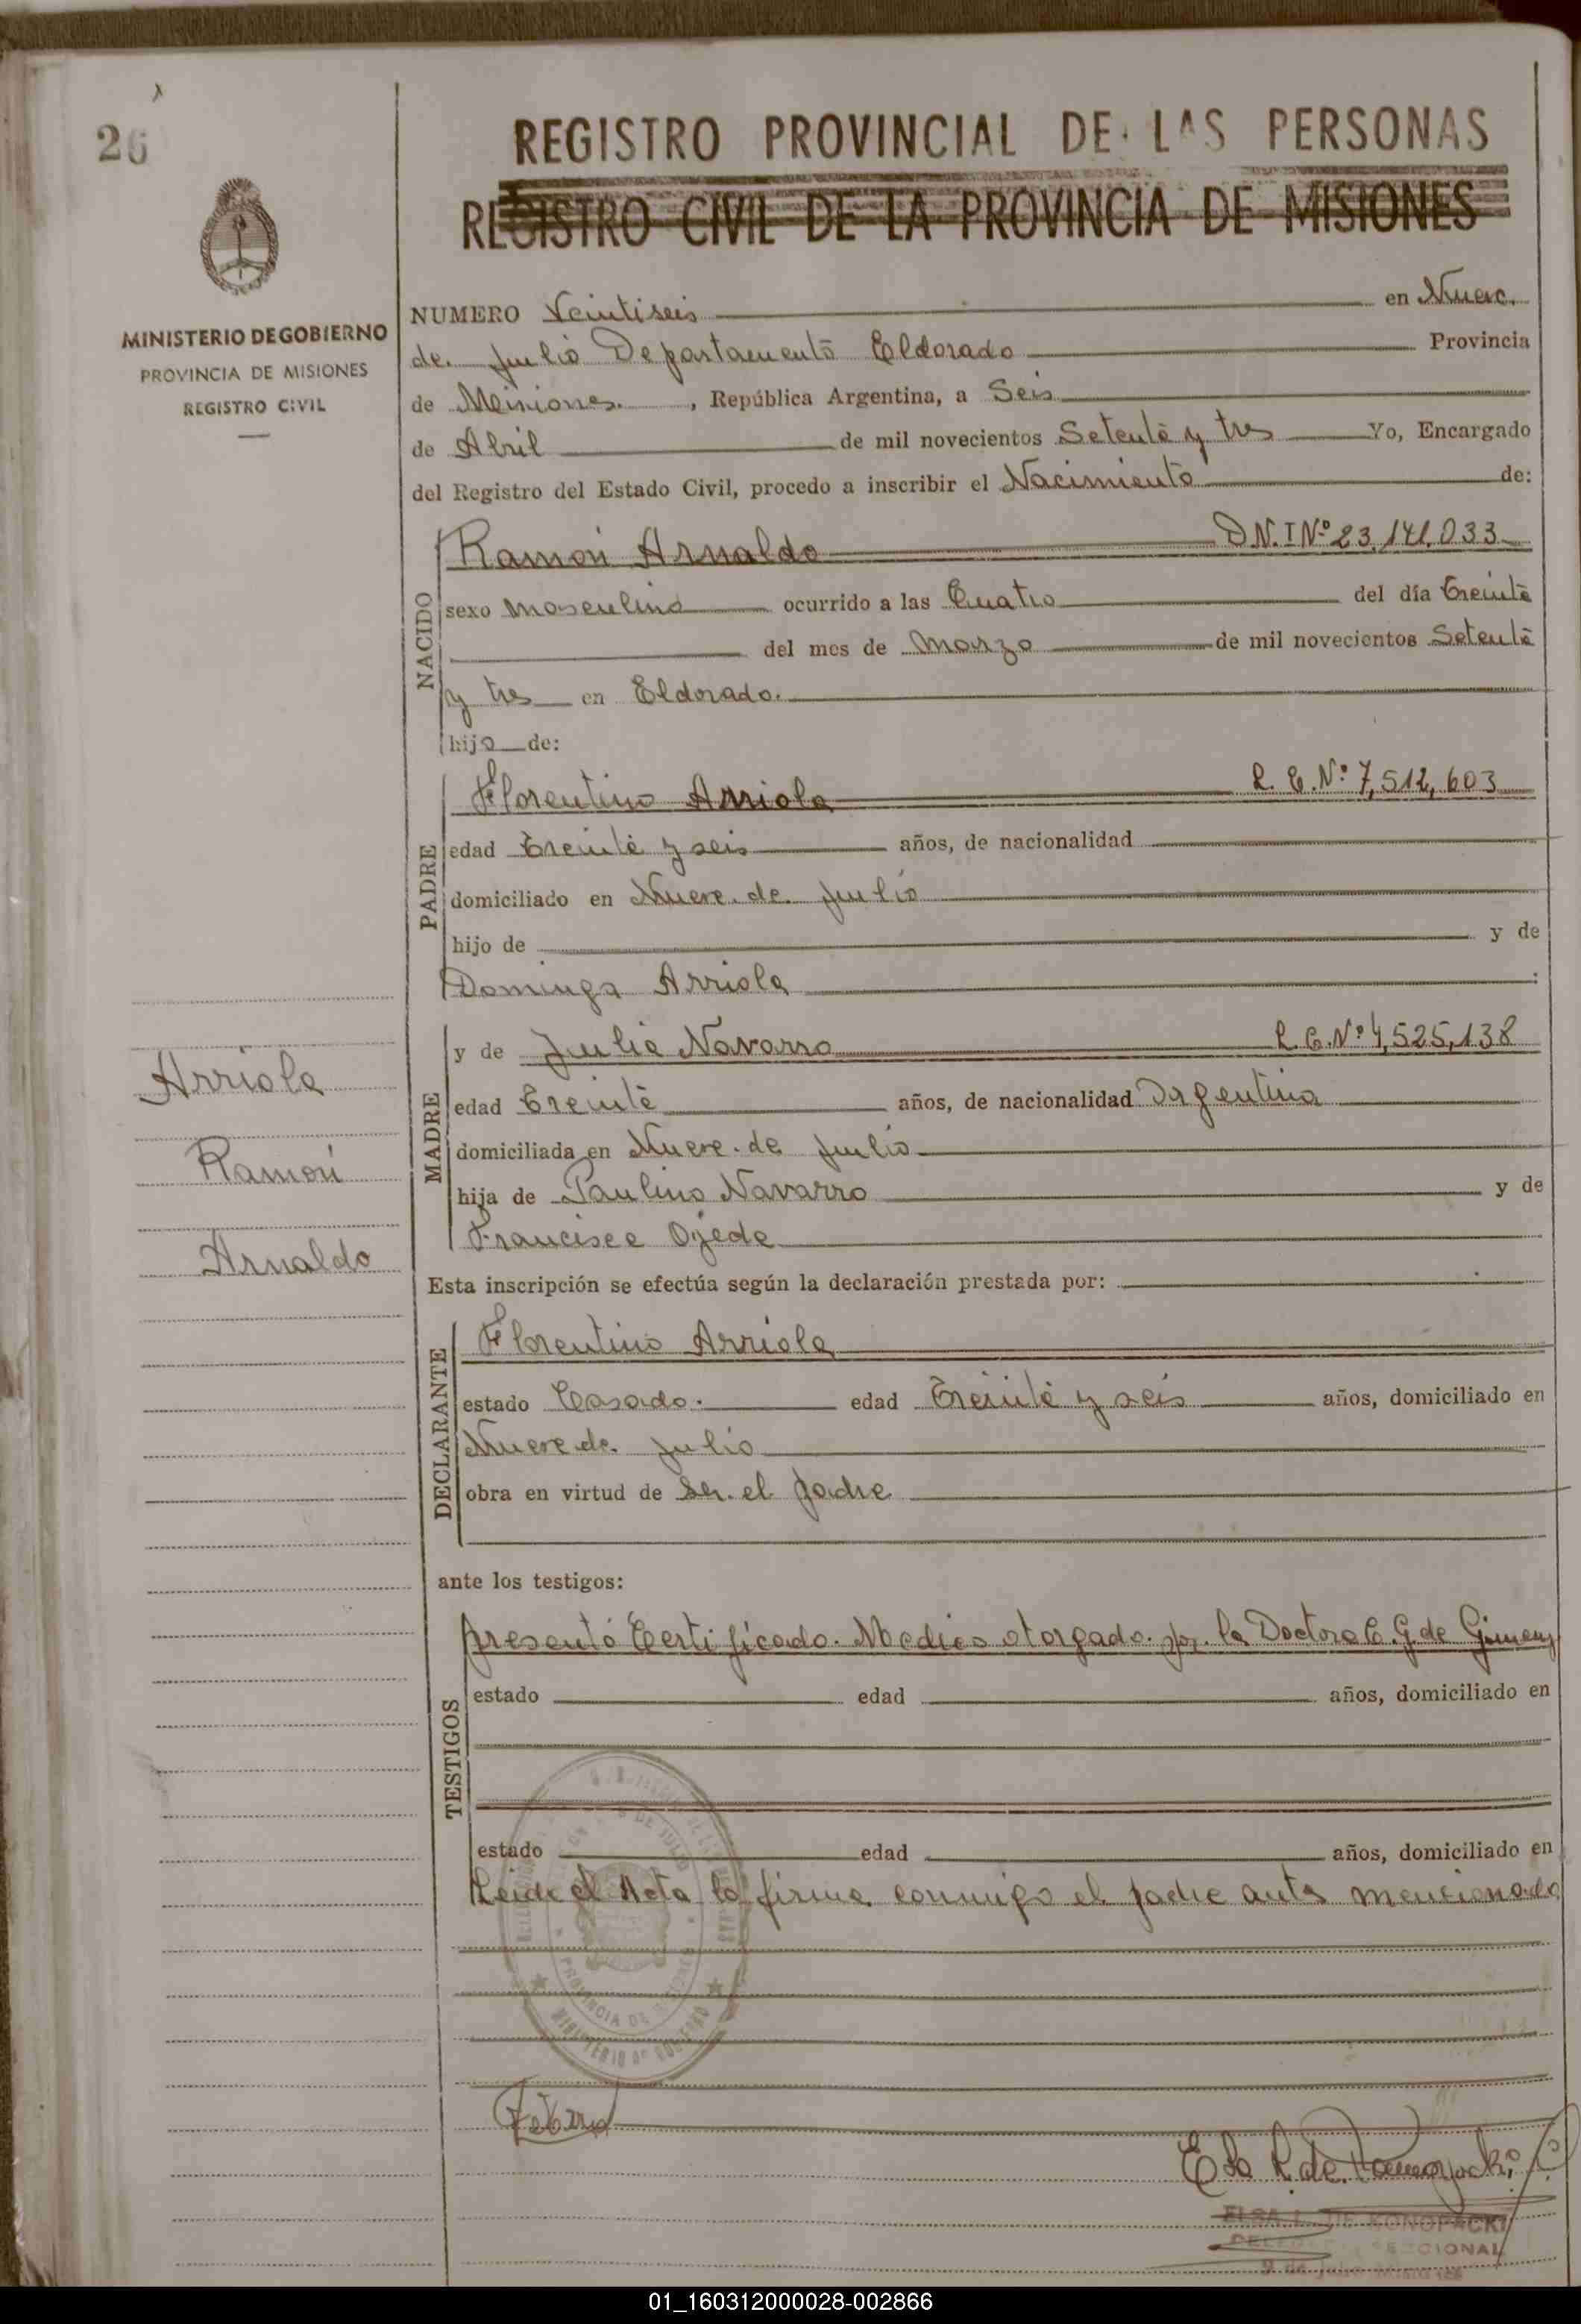 26
MINISTERIO DE GOBIERNO
PROVINCIA DE MISIONES
REGISTRO CIVIL
REGISTRO PROVINCIAL DE LAS PERSONAS
REGISTRO CIVIL DE LA PROVINCIA DE MISIONES
NUMERO Veintiseis en Nueve
de Julio Departamento Eldorado Provincia
de Misiones, República Argentina, a Seis
de Abril de mil novecientos Setenta y tres Yo, Encargado
del Registro del Estado Civil, procedo a inscribir el Nacimiento de:
NACIDO
Ramon Arnaldo D.N.I Nº 23.141.033
sexo masculino ocurrido a las Cuatro del día treinta
del mes de Marzo de mil novecientos Setenta
y tres en Eldorado.
hijo de:
PADRE
Florentino Arriola L. E. Nº 7,512,603
edad treinta y seis años, de nacionalidad
domiciliado en Nueve de Julio
hijo de y de
Dominga Arriola
MADRE
y de Julia Navarro L. C. Nº 4,525,138
edad treinta años, de nacionalidad Argentina
domiciliada en Nueve de Julio
hija de Paulino Navarro y de
Francisca Ojeda
Arriola
Ramon
Arnaldo
Esta inscripción se efectúa según la declaración prestada por:
DECLARANTE
Florentino Arriola
estado Casado. edad treinta y seis años, domiciliado en
Nueve de Julio
obra en virtud de ser el padre
ante los testigos:
TESTIGOS
presentó Certificado Medico otorgado por la Doctora C. G. de Gimenez
estado edad años, domiciliado en
estado edad años, domiciliado en
Leida el Acta la firma conmigo el padre antes mencionado
PROVINCIA DE MISIONES
MINISTERIO DE GOBIERNO
Elsa L. de Konopacki
ELSA L. DE KONOPACKI
SECCIONAL
9 de Julio Misiones
01_160312000028-002866